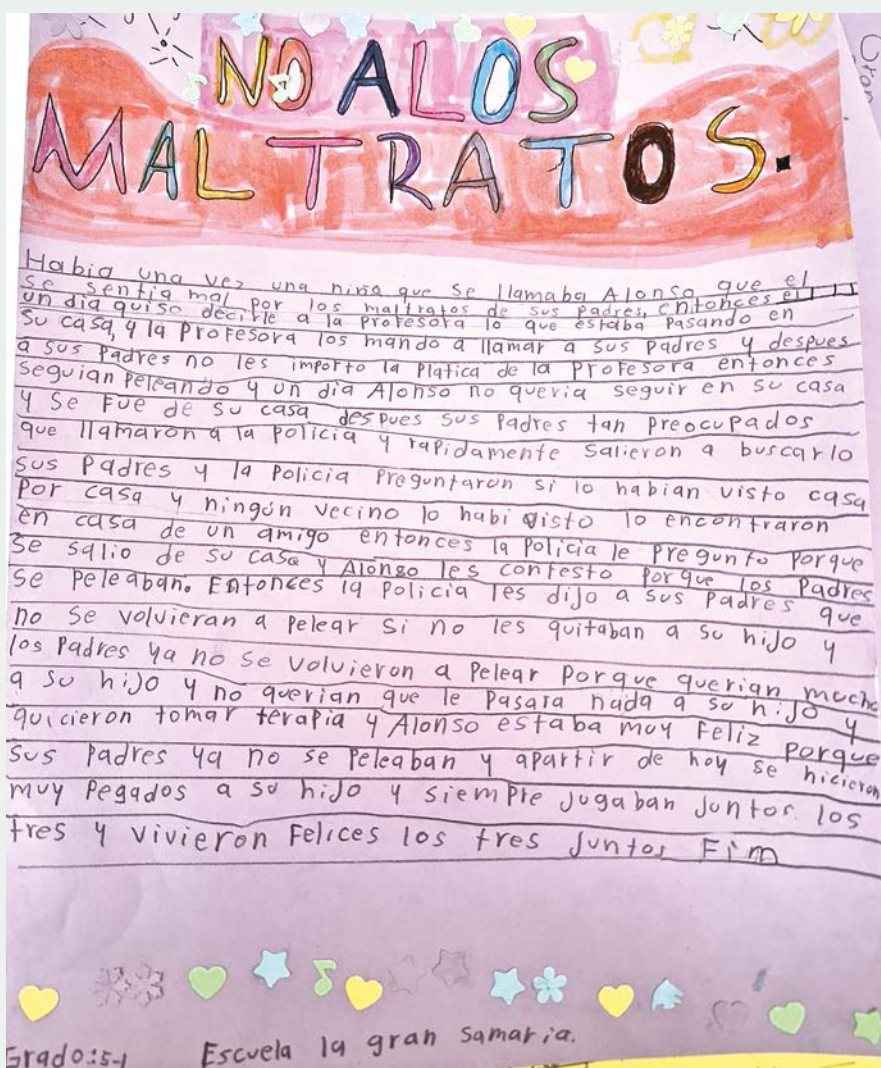 NO A LOS
MALTRATOS.
Habia una vez una niña que se llamaba Alonso que el
se sentia mal por los maltratos de sus padres, entonces el
un dia quiso decirle a la profesora lo que estaba pasando en
su casa, y la profesora los mando a llamar a sus padres y despues
a sus padres no les importo la platica de la profesora entonces
seguian peleando y un dia Alonso no queria seguir en su casa
y se fue de su casa despues sus padres tan preocupados
que llamaron a la policia y rapidamente salieron a buscarlo
sus padres y la policia preguntaron si lo habian visto casa
por casa y ningún vecino lo habi visto lo encontraron
en casa de un amigo entonces la policia le pregunto porque
se salio de su casa y Alonso les contesto porque los padres
se peleaban. Entonces la policia les dijo a sus padres que
no se volvieran a pelear si no les quitaban a su hijo y
los padres ya no se volvieron a pelear porque querian mucho
a su hijo y no querian que le pasara nada a su hijo y
quicieron tomar terapia y Alonso estaba muy feliz porque
sus padres ya no se peleaban y apartir de hoy se hicieron
muy pegados a su hijo y siempre jugaban juntos los
tres y vivieron felices los tres juntos Fim
Grado:5-1 Escuela la gran samaria.